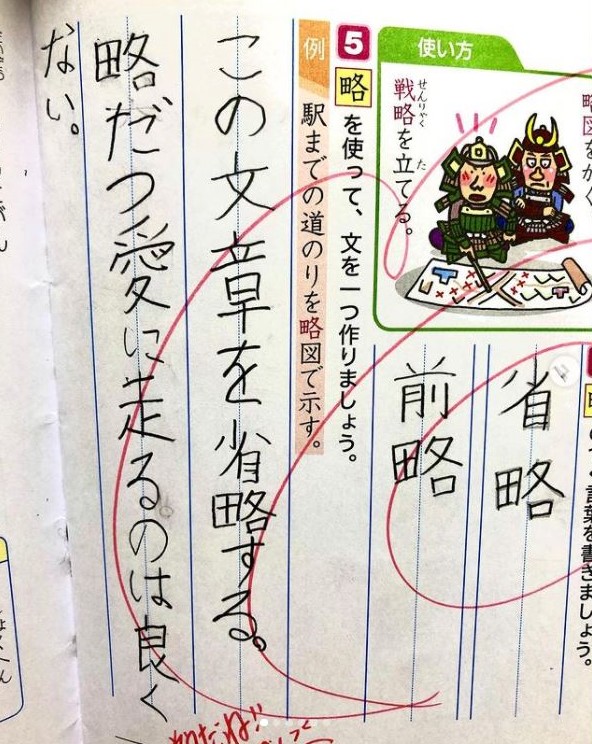 使い方
略図をかく
戦略を立てる。
せんりゃく
た
つく言葉を書きましょう。
省略
前略
5 略を使って、文を一つ作りましょう。
例 駅までの道のりを略図で示す。
この文章を省略する。
略だつ愛に走るのは良く
ない。